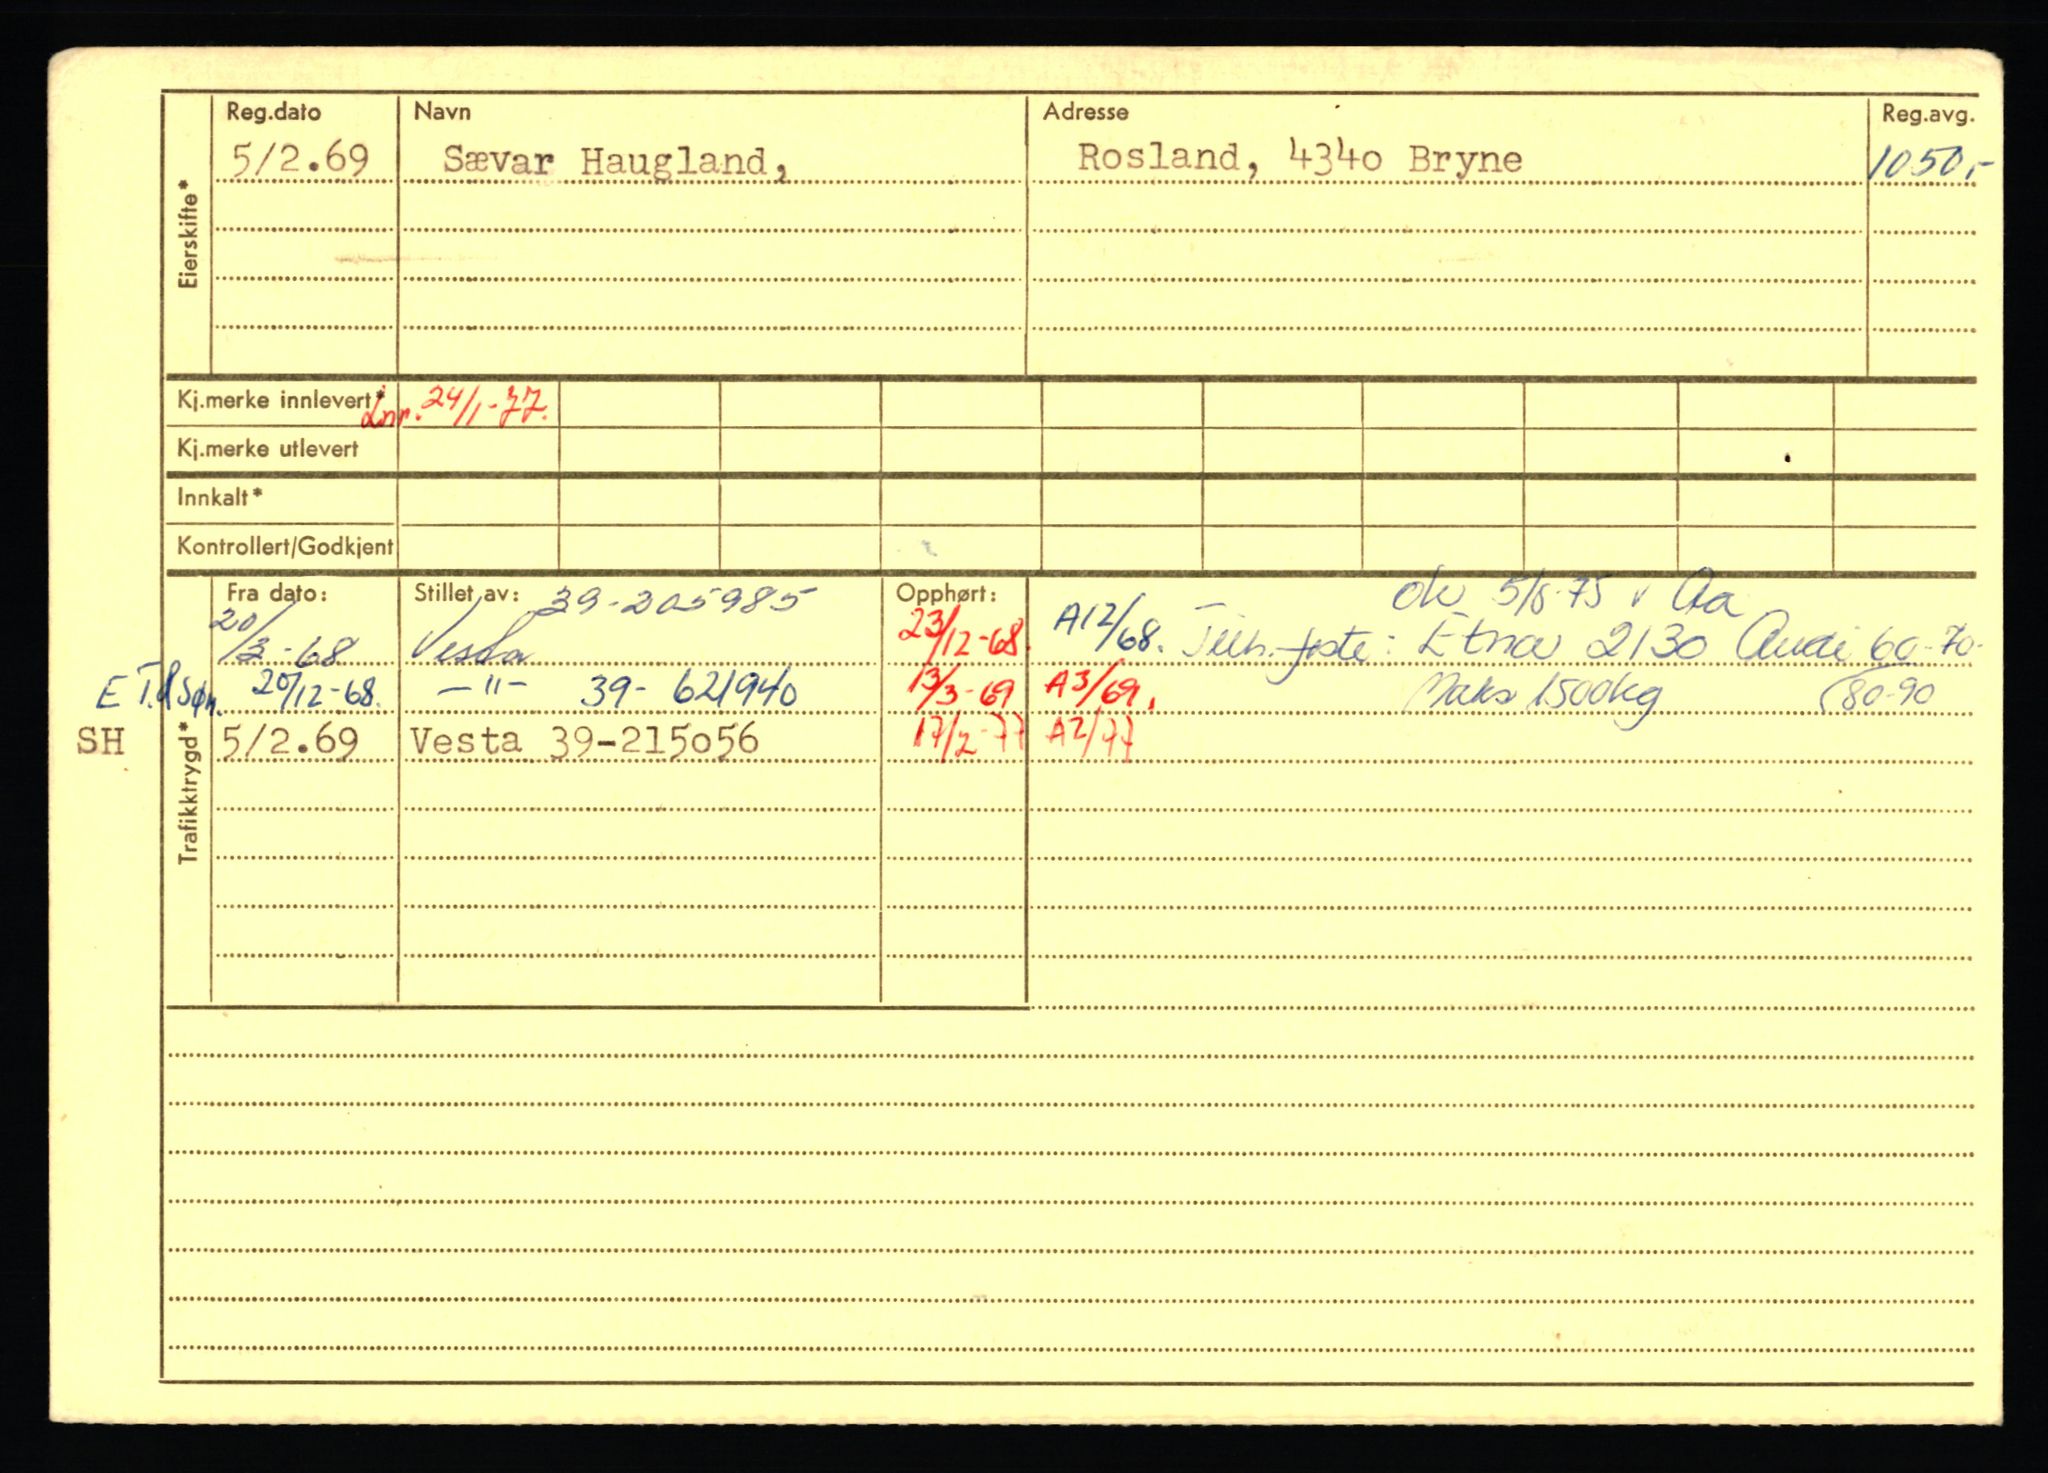 Reg.dato Navn Adresse Reg.avg.
5/2.69 Sævar Haugland, Rosland, 4340 Bryne 1050,-
Eierskifte*
Kj.merke innlevert* Lnr. 24/1-77.
Kj.merke utlevert
Innkalt*
Kontrollert/Godkjent
Fra dato: Stillet av: 39-205985 Opphørt: ok 5/8-75 v Aa
20/3-68 Vesta 23/12-68. A12/68. Tilh.feste: Etna 2130 Audi 60-70-
E T.d Søn. 20/12-68. -"- 39-621940 13/3-69 A3/69. Maks 1500kg (80-90
SH 5/2.69 Vesta 39-215056 17/2-77 A2/77
Trafikktrygd*